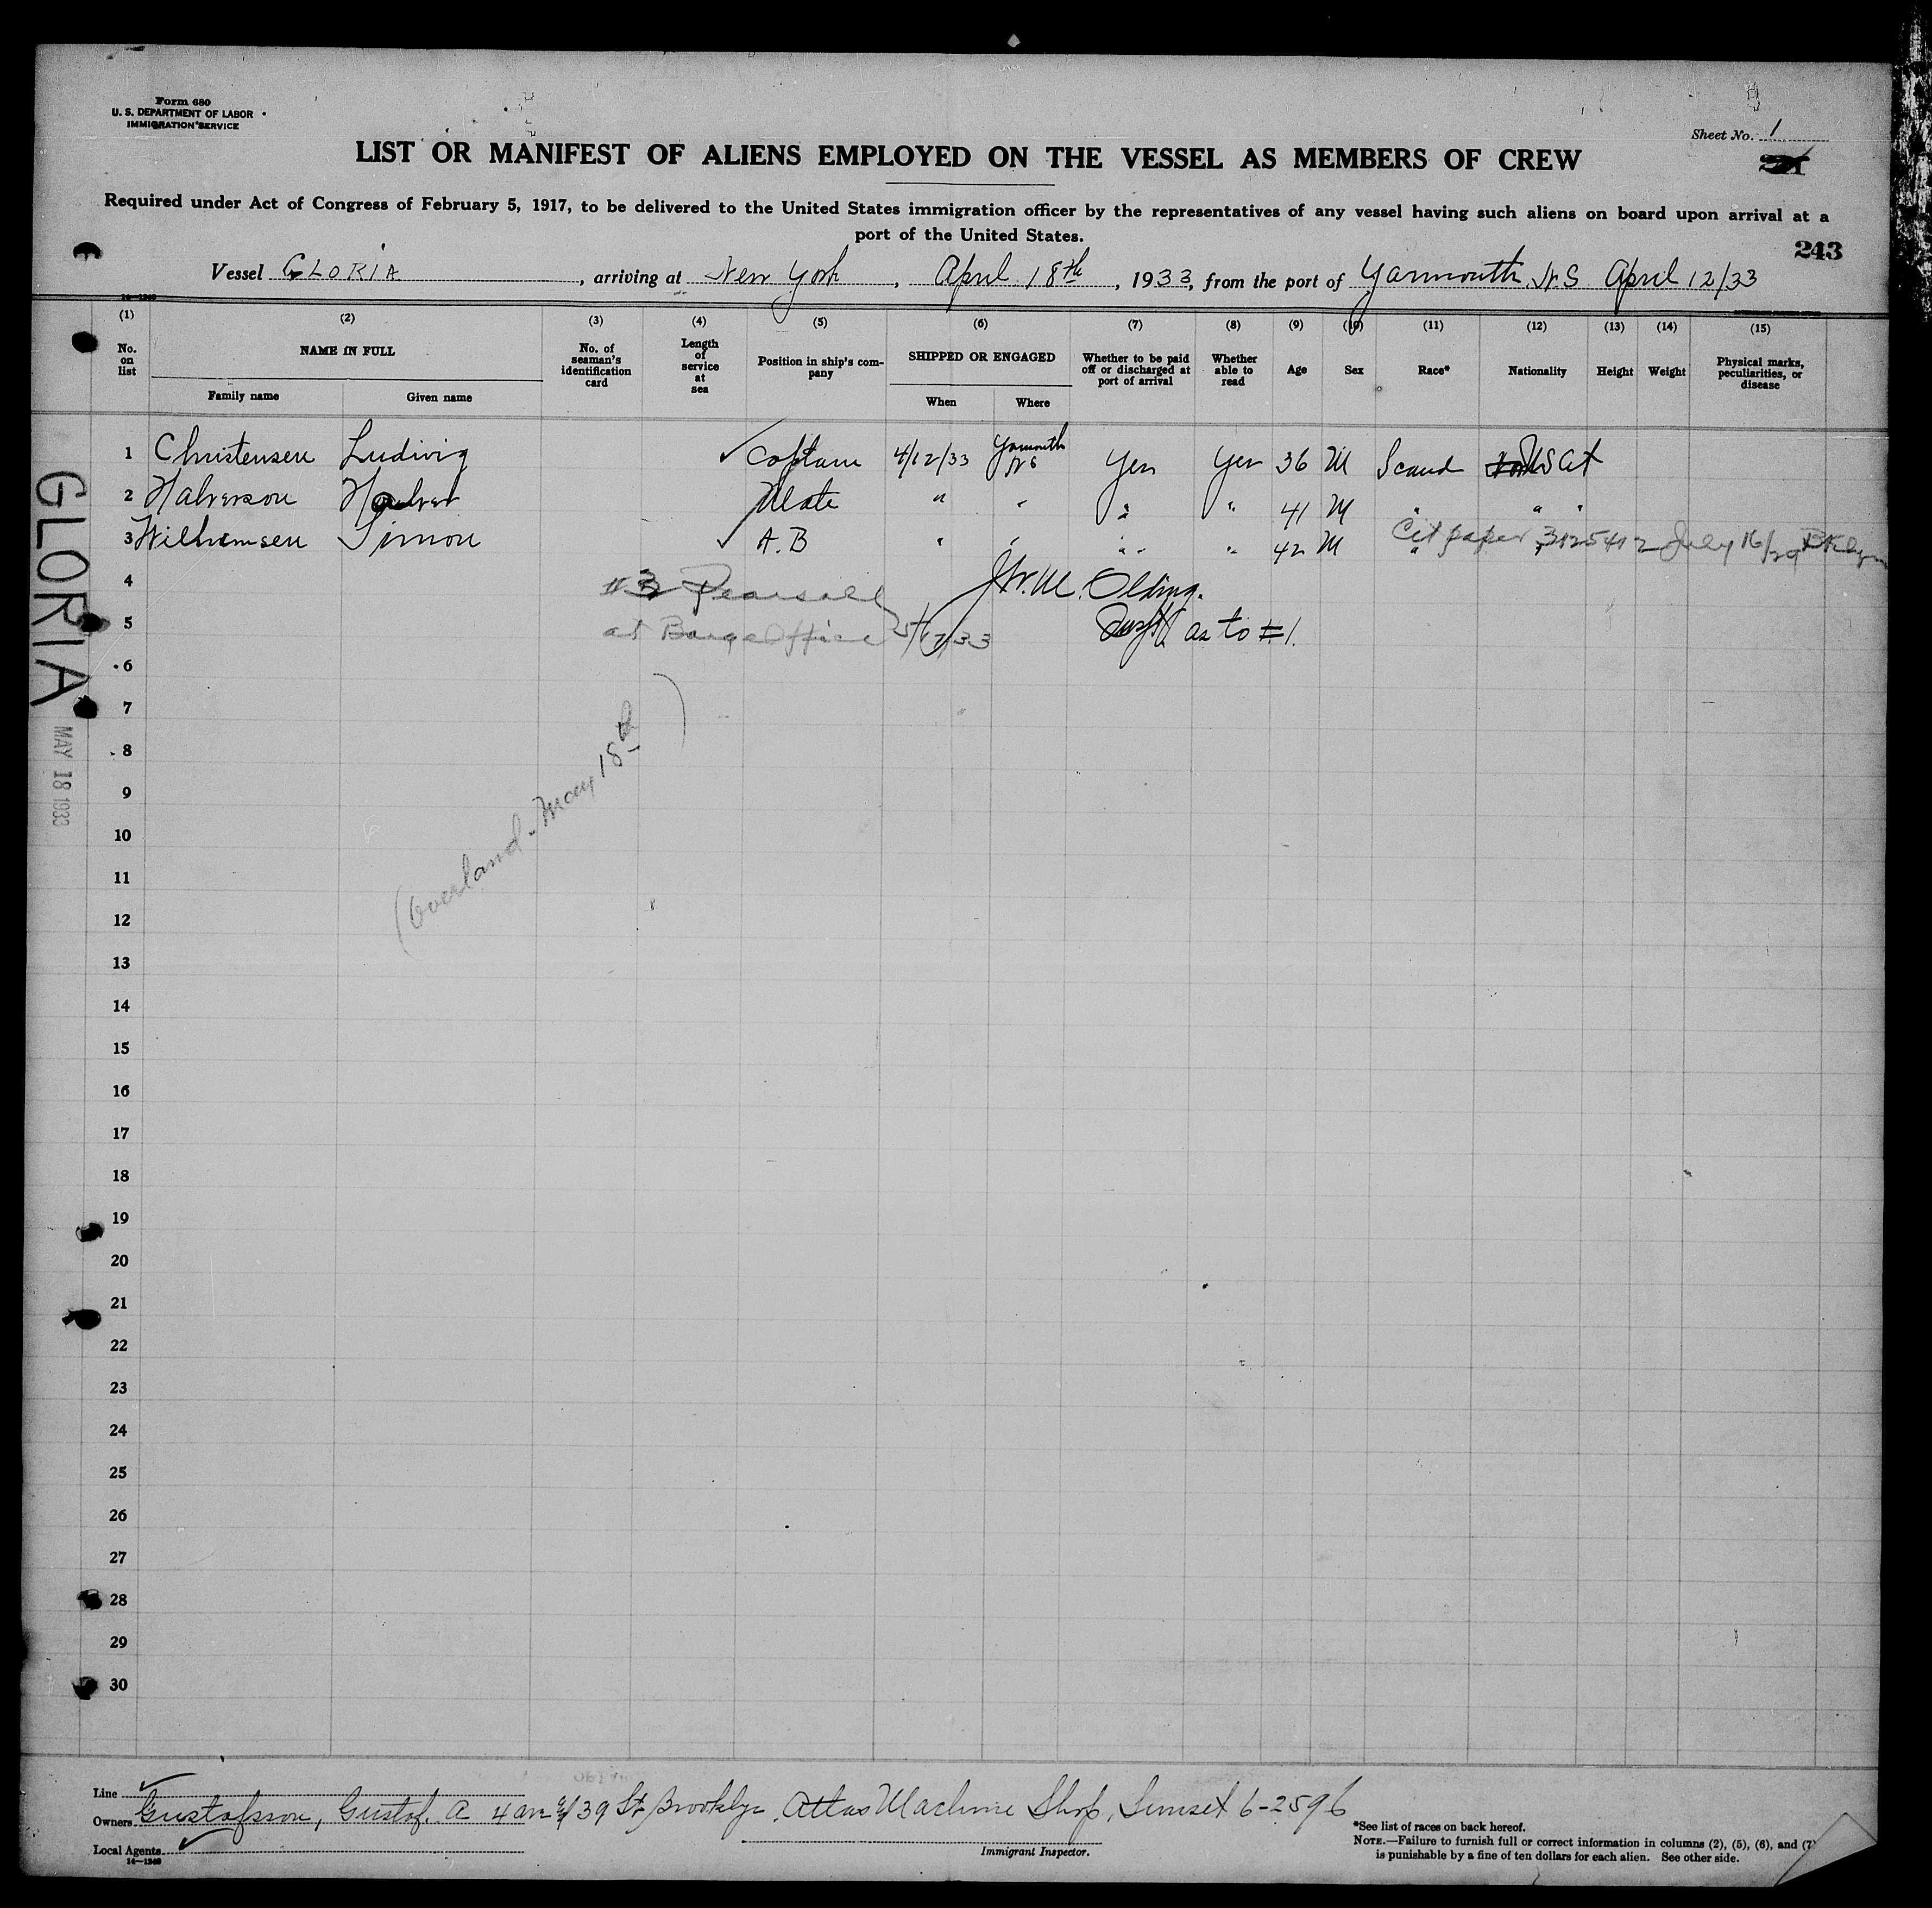 Form 680
U. S. DEPARTMENT OF LABOR
IMMIGRATION SERVICE
Sheet No. 1
LIST OR MANIFEST OF ALIENS EMPLOYED ON THE VESSEL AS MEMBERS OF CREW
Required under Act of Congress of February 5, 1917, to be delivered to the United States immigration officer by the representatives of any vessel having such aliens on board upon arrival at a
port of the United States.
243
Vessel GLORIA, arriving at New York, April 18th, 1933, from the port of Yarmouth, N.S April 12/33
14-1240
(1) (2) (3) (4) (5) (6) (7) (8) (9) (10) (11) (12) (13) (14) (15)
No. on list
NAME IN FULL
Family name Given name
No. of seaman's identification card
Length of service at sea
Position in ship's company
SHIPPED OR ENGAGED
When Where
Whether to be paid off or discharged at port of arrival
Whether able to read
Age
Sex
Race*
Nationality
Height
Weight
Physical marks, peculiarities, or disease
1 Christensen Ludivig ✓ Captain 4/12/33 Yarmouth NS Yes Yes 36 M Scand US Cit
2 Halverson Halver Mate " " " " 41 M " " "
3 Wilhemsen Simon ✓ A.B " " " " 42 M " "
Cit paper 3125412 July 16/29 Bklyn
4
#3 Pearsall
J.W.M. Olding.
5
at Barge Office 5/17/33
as to #1.
6
7
8
9
10
11
12
13
14
15
16
17
18
19
20
21
22
23
24
25
26
27
28
29
30
(Overland - May 18th)
GLORIA
MAY 18 1933
Line
Owners Gustafsson, Gustof. A 4 ave & 39 St, Brooklyn, Atlas Machine Shop, Sunset 6-2596
Local Agents
14-1240
Immigrant Inspector.
*See list of races on back hereof.
NOTE.—Failure to furnish full or correct information in columns (2), (5), (6), and (7)
is punishable by a fine of ten dollars for each alien. See other side.